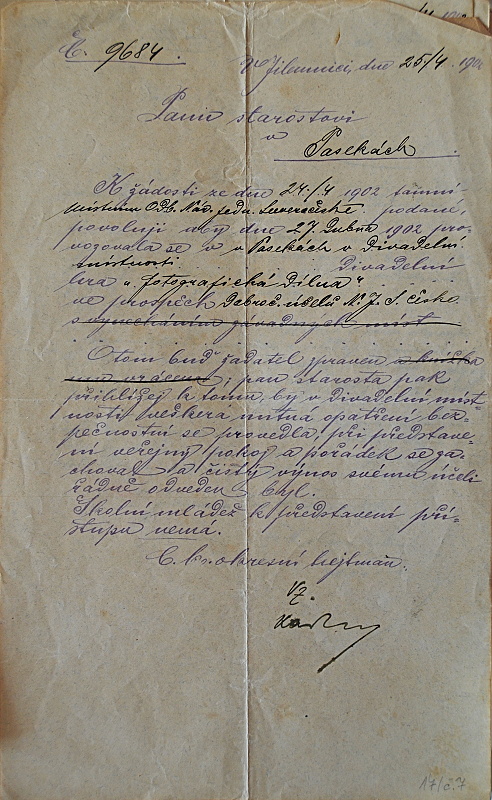 Č. 9684.
V Jilemnici, dne 25/4 190
Panu starostovi
v
Pasekách
K žádosti ze dne 24./4 1902 tamní-
místním Odb. Nár. jedn. Severočeské podané,
povoluji aby dne 27. Dubna 1902 pro-
vozovala se v v Pasekách v Divadelní
místnosti Divadelní
hra „Fotografická Dílna"
ve prospěch Dobroč. účelů N. J. S. České
s vynecháním závadných míst
O tom buď žadatel zpraven a knížka
mu vrácena; pan starosta pak
přihlížej k tomu, by v divadelní míst-
nosti veškerá nutná opatření bez-
pečnostní se provedla, při představe-
ní veřejný pokoj a pořádek se za-
choval a čistý výnos svému účeli
řádně odveden byl.
Školní mládež k představení pří-
stupu nemá.
C. k. okresní hejtman:
Vz.
17/č.7